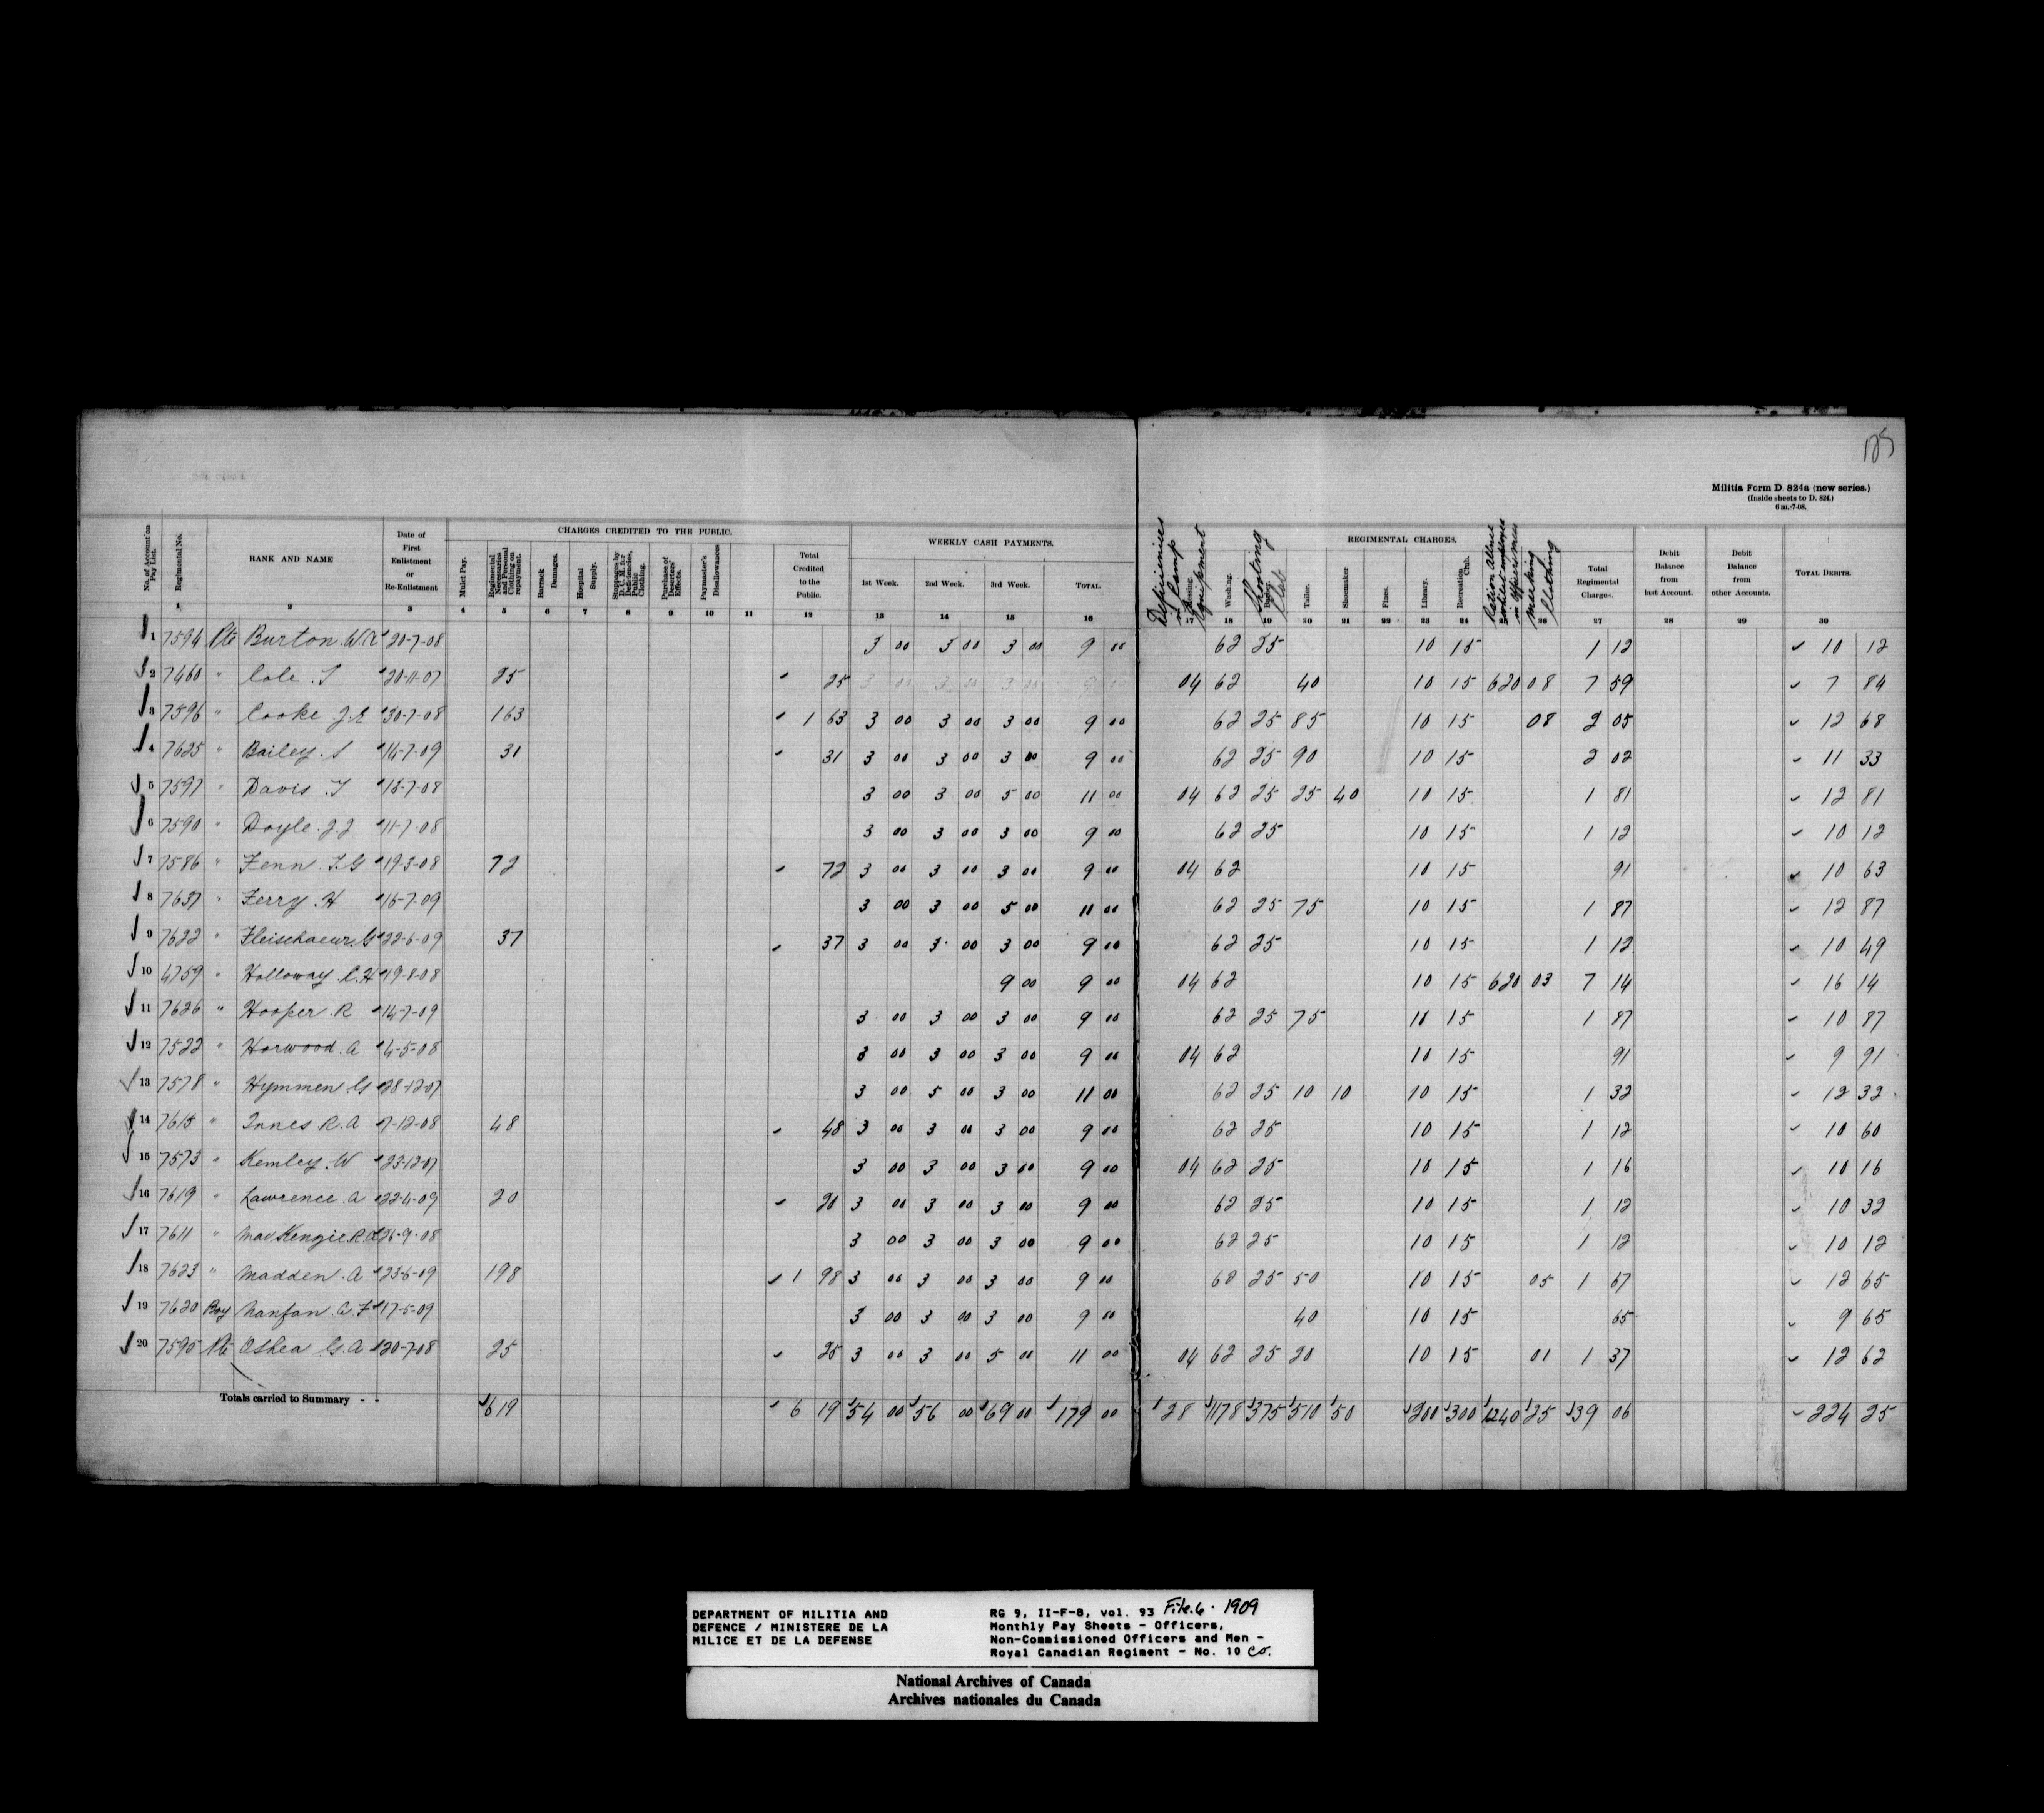 125
Militia Form D. 824a (new series.)
(Inside sheets to D. 824.)
6 m.-7-08.
No. of Account on Pay List. Regimental No. RANK AND NAME Date of First Enlistment or Re-Enlistment
CHARGES CREDITED TO THE PUBLIC.
Mulct Pay. Regimental Necessaries and Personal Clothing on repayment. Barrack Damages. Hospital Supply. Stoppages by D.C.M. for Deficiencies, Public Clothing. Purchase of Deserters' Effects. Paymaster's Disallowances Total Credited to the Public.
WEEKLY CASH PAYMENTS.
1st Week. 2nd Week. 3rd Week. TOTAL.
REGIMENTAL CHARGES.
Deficiencies in Camp Equipment Washing. Shooting Club Tailor. Shoemaker Fines. Library. Recreation Club. Marking Clothing Total Regimental Charges. Debit Balance from last Account. Debit Balance from other Accounts. TOTAL DEBITS.
1 2 3 4 5 6 7 8 9 10 11 12 13 14 15 16 17 18 19 20 21 22 23 24 25 26 27 28 29 30
1 7594 Pte Burton. W. 20-7-08 3 00 3 00 3 00 9 00 62 25 10 15 1 12 10 12
2 7460 " Cole. 20-11-07 25 25 3 00 3 00 3 00 9 00 04 62 40 10 15 620 08 7 59 7 84
3 7596 " Cooke 30-7-08 163 1 63 3 00 3 00 3 00 9 00 62 25 85 10 15 08 2 05 12 68
4 7625 " Bailey. S 14-7-09 31 31 3 00 3 00 3 00 9 00 62 25 90 10 15 2 02 11 33
5 7597 " Davis. T 18-7-08 3 00 3 00 5 00 11 00 04 62 25 25 40 10 15 1 81 12 81
6 7590 " Doyle. J. J 11-7-08 3 00 3 00 3 00 9 00 62 25 10 15 1 12 10 12
7 7586 " Fenn. T. G 19-3-08 72 72 3 00 3 00 3 00 9 00 04 62 10 15 91 10 63
8 7637 " Ferry. H 16-7-09 3 00 3 00 5 00 11 00 62 25 75 10 15 1 87 12 87
9 7622 " Fleischaeur. G 22-6-09 37 37 3 00 3 00 3 00 9 00 62 25 10 15 1 12 10 49
10 4759 " Holloway C. H 19-8-08 9 00 9 00 04 62 10 15 620 03 7 14 16 14
11 7626 " Hooper. R 14-7-09 3 00 3 00 3 00 9 00 62 25 75 10 15 1 87 10 87
12 7522 " Horwood. A 4-5-08 3 00 3 00 3 00 9 00 04 62 10 15 91 9 91
13 7578 " Hymmen. G 28-12-07 3 00 5 00 3 00 11 00 62 25 10 10 10 15 1 32 12 32
14 7615 " Innes R. A 7-12-08 48 48 3 00 3 00 3 00 9 00 62 25 10 15 1 12 10 60
15 7573 " Kemley. W 23-12-07 3 00 3 00 3 00 9 00 04 62 25 10 15 1 16 10 16
16 7619 " Lawrence. A 22-4-09 20 20 3 00 3 00 3 00 9 00 62 25 10 15 1 12 10 32
17 7611 " MacKenzie. R. 26-9-08 3 00 3 00 3 00 9 00 62 25 10 15 1 12 10 12
18 7623 " Madden. A 23-6-09 198 1 98 3 00 3 00 3 00 9 00 62 25 50 10 15 05 1 67 12 65
19 7620 Boy Nanfan. A. F 17-5-09 3 00 3 00 3 00 9 00 40 10 15 65 9 65
20 7595 Pte OShea G. A 20-7-08 25 25 3 00 3 00 5 00 11 00 04 62 25 20 10 15 01 1 37 12 62
Totals carried to Summary - - 619 6 19 54 00 56 00 69 00 179 00 28 1178 375 510 50 200 300 1240 25 39 06 224 25
DEPARTMENT OF MILITIA AND
DEFENCE / MINISTERE DE LA
MILICE ET DE LA DEFENSE
RG 9, II-F-8, vol. 93 File. 6. 1909
Monthly Pay Sheets - Officers,
Non-Commissioned Officers and Men -
Royal Canadian Regiment - No. 10 Co.
National Archives of Canada
Archives nationales du Canada